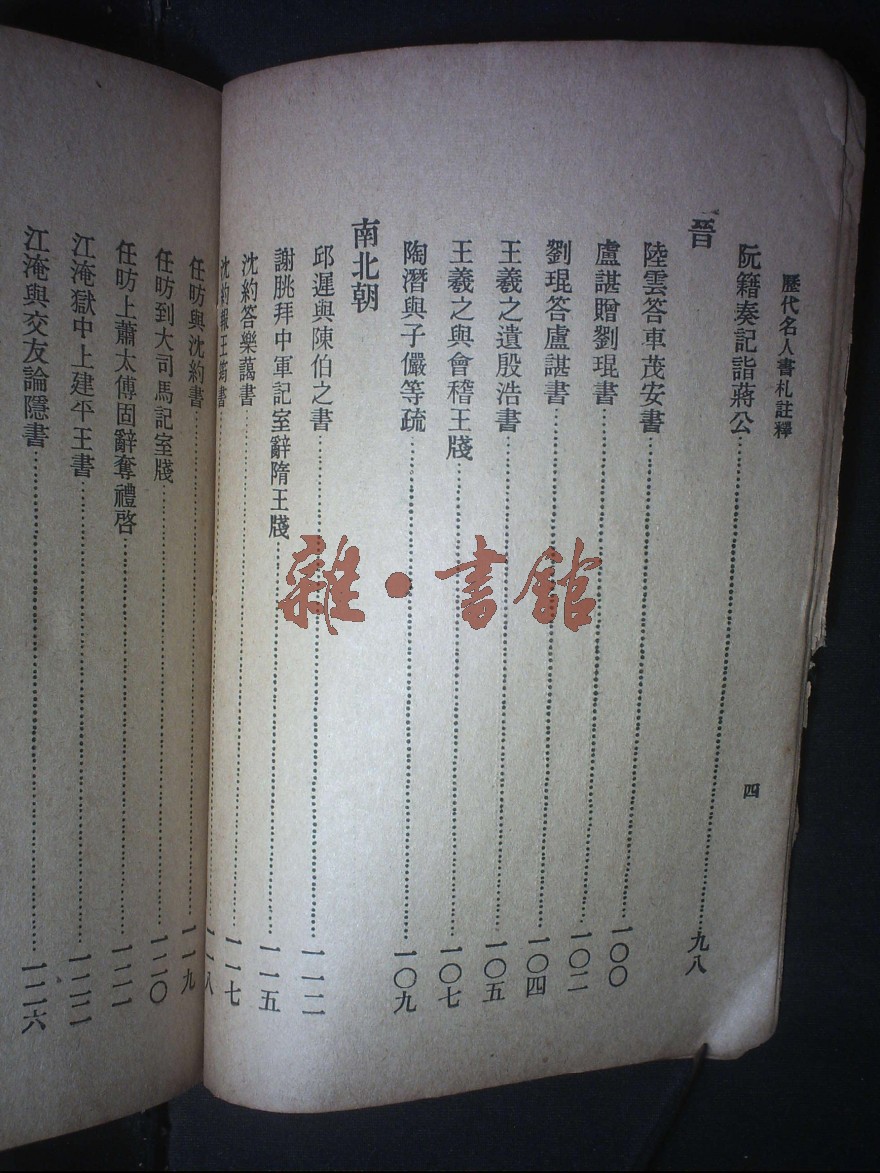 歷代名人書札註釋
四
阮籍奏記詣蔣公……九八
晉
陸雲答車茂安書……一〇〇
盧諶贈劉琨書……一〇二
劉琨答盧諶書……一〇四
王羲之遺殷浩書……一〇五
王羲之與會稽王牋……一〇七
陶潛與子儼等疏……一〇九
南北朝
邱遲與陳伯之書……一一二
謝朓拜中軍記室辭隋王牋……一一五
沈約答樂藹書……一一七
沈約報王筠書……一一八
任昉與沈約書……一一九
任昉到大司馬記室牋……一二〇
任昉上蕭太傅固辭奪禮啓……一二一
江淹獄中上建平王書……一二二
江淹與交友論隱書……一二六
雜·書館